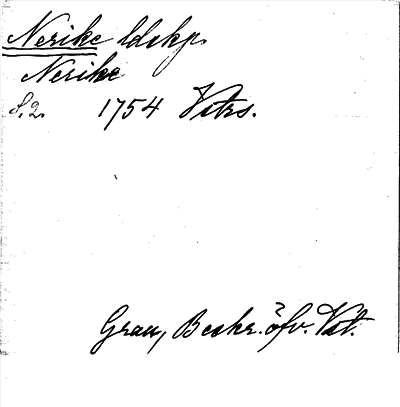 Nerike ldskp.
Nerike
S. 2. 1754 Vstrs.
Grau, Beskr. öfv. Vst.